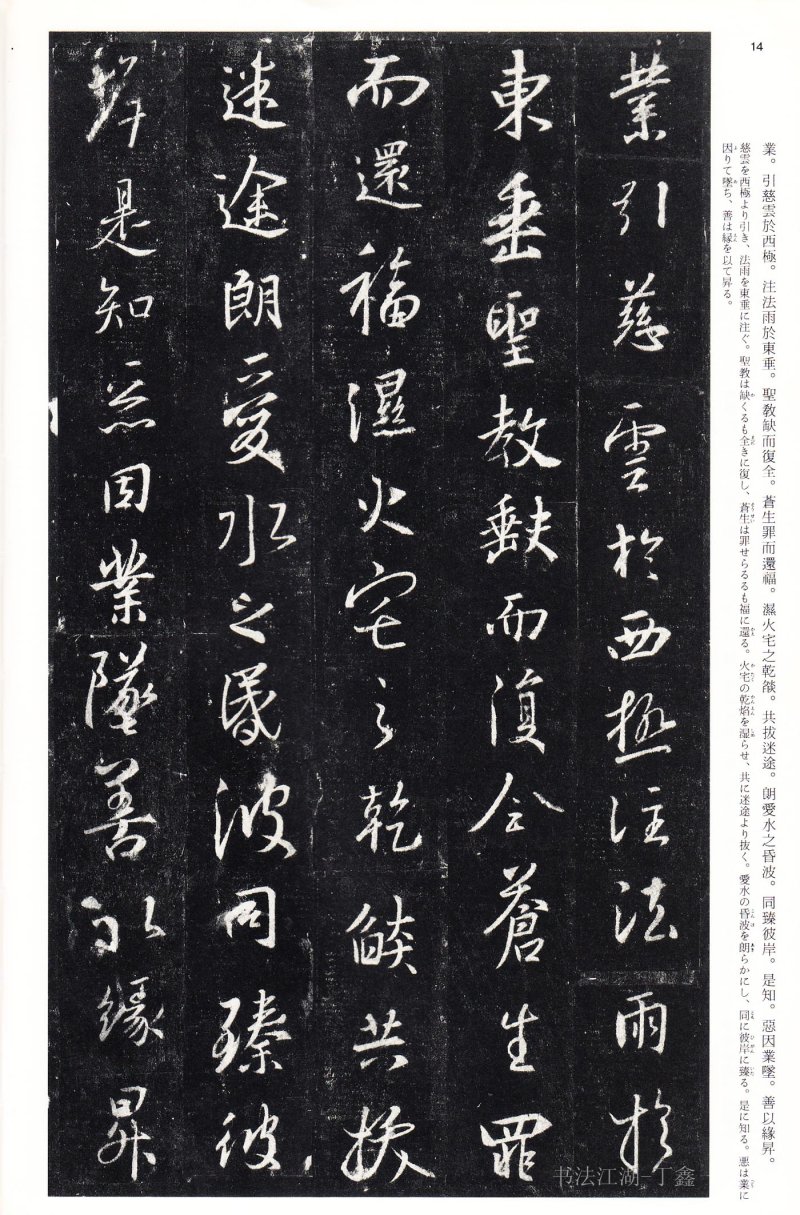 14
業。引慈雲於西極。注法雨於東垂。聖教缺而復全。蒼生罪而還福。濕火宅之乾燄。共拔迷途。朗愛水之昏波。同臻彼岸。是知。惡因業墜。善以緣昇。
慈雲を西極より引き、法雨を東垂に注ぐ。聖教は缺くるも全きに復し、蒼生は罪せらるるも福に還る。火宅の乾焰を湿らせ、共に迷途より抜く。愛水の昏波を朗らかにし、同に彼岸に臻る。是に知る。悪は業に
因りて墜ち、善は縁を以て昇る。
業引慈雲於西極注法雨於
東垂聖教缺而復全蒼生罪
而還福濕火宅之乾燄共拔
迷途朗愛水之昏波同臻彼
岸是知惡因業墜善以緣昇
书法江湖-丁鑫